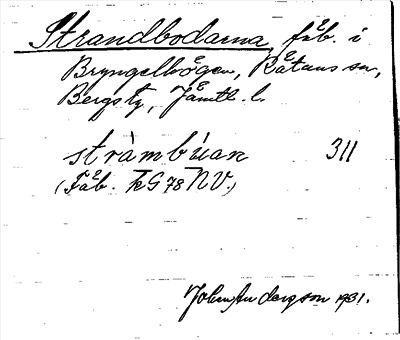 Strandbodarna, fåb. i
Bryngelhögen, Rätans sn,
Bergs tg, Jämtl. l.
stràmbúan 311
(Fåb. KG 78 NV.)
John Andersson 1931.